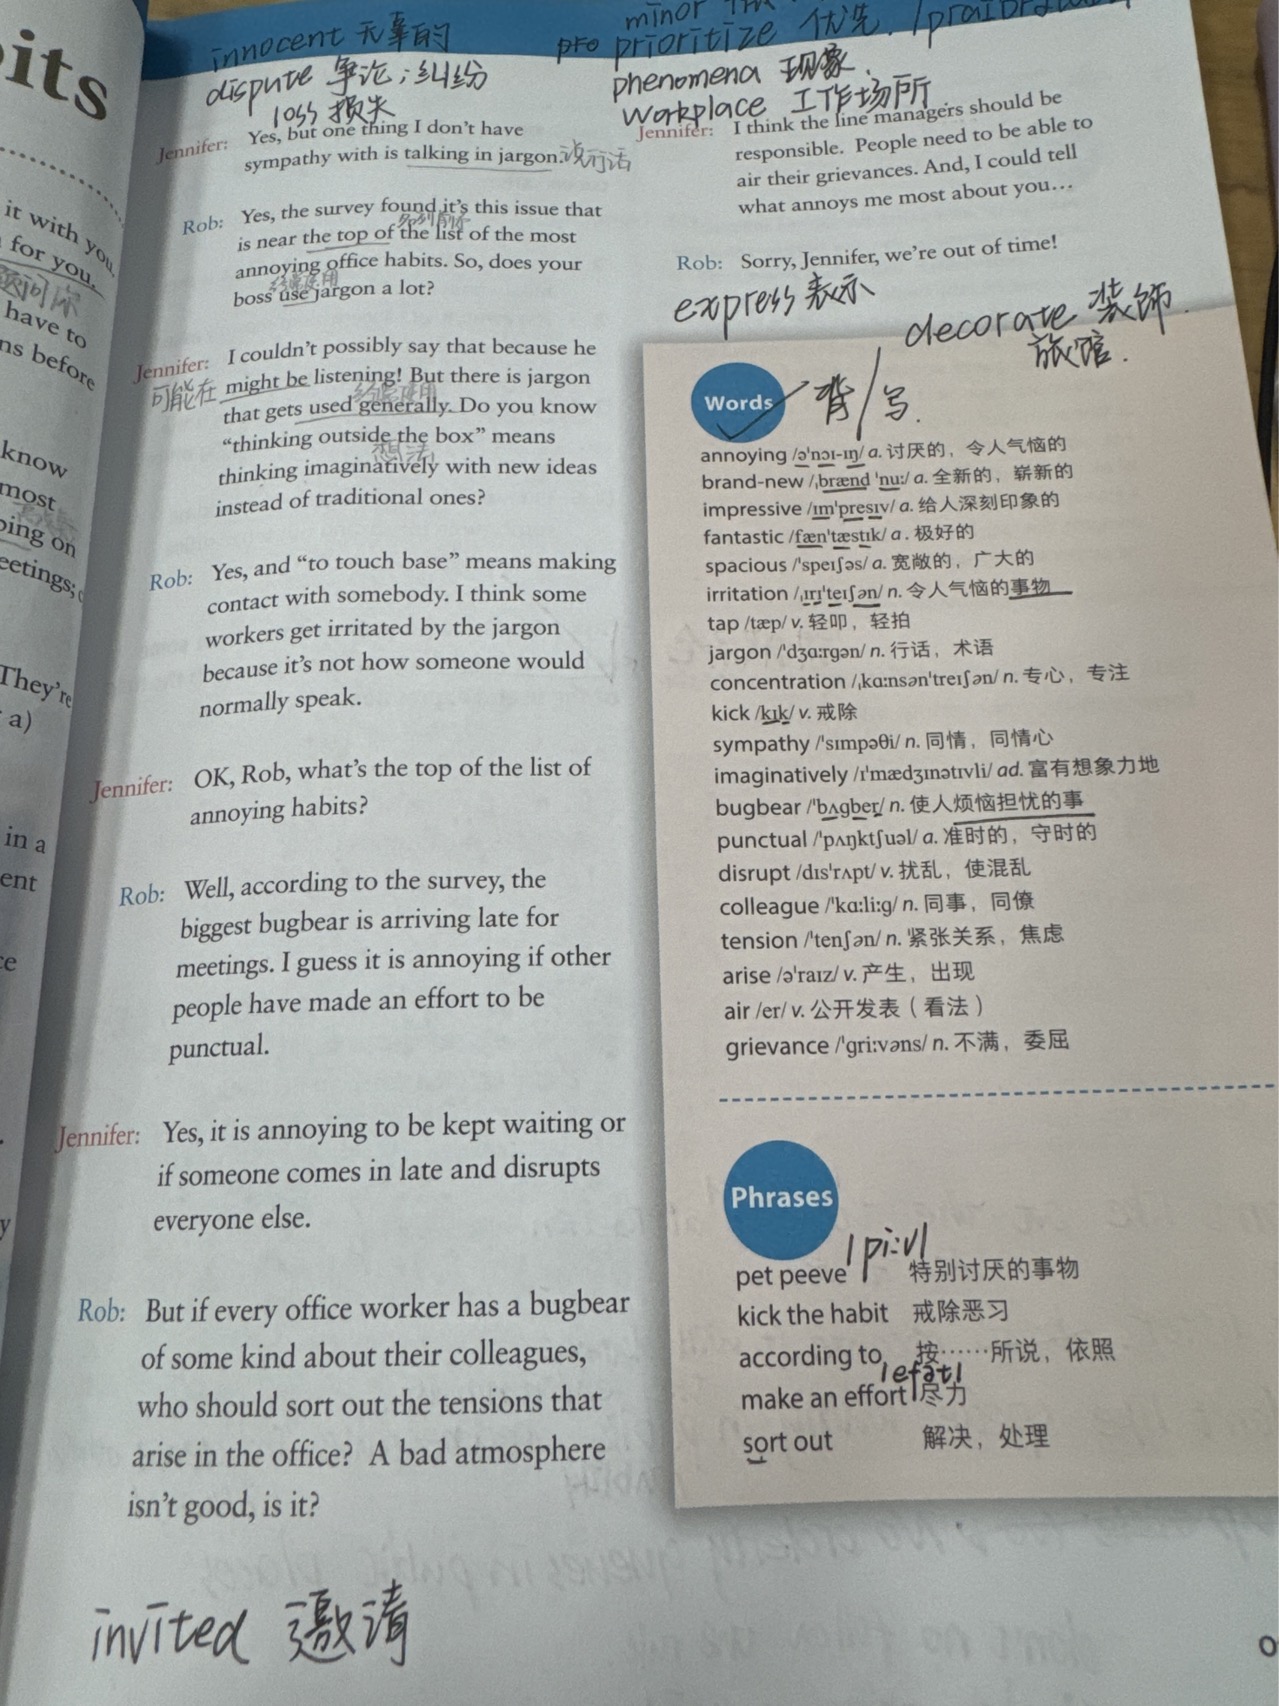 its
it with you.
for you,
have to
ns before
know
most
ping on
eetings;
They're
a)
in a
ent
ce
y
innocent 无辜的
dispute 争论;纠纷
loss 损失
Jennifer: Yes, but one thing I don't have
sympathy with is talking in jargon. 说行话
Rob: Yes, the survey found it's this issue that
is near the top of the list of the most
annoying office habits. So, does your
经常使用
boss use jargon a lot?
Jennifer: I couldn't possibly say that because he
可能在 might be listening! But there is jargon
经常使用
that gets used generally. Do you know
"thinking outside the box" means
想法
thinking imaginatively with new ideas
instead of traditional ones?
Rob: Yes, and "to touch base" means making
contact with somebody. I think some
workers get irritated by the jargon
because it's not how someone would
normally speak.
Jennifer: OK, Rob, what's the top of the list of
annoying habits?
Rob: Well, according to the survey, the
biggest bugbear is arriving late for
meetings. I guess it is annoying if other
people have made an effort to be
punctual.
Jennifer: Yes, it is annoying to be kept waiting or
if someone comes in late and disrupts
everyone else.
Rob: But if every office worker has a bugbear
of some kind about their colleagues,
who should sort out the tensions that
arise in the office? A bad atmosphere
isn't good, is it?
invited 邀请
minor
prioritize 优先
phenomena 现象
workplace 工作场所
Jennifer: I think the line managers should be
responsible. People need to be able to
air their grievances. And, I could tell
what annoys me most about you…
Rob: Sorry, Jennifer, we're out of time!
express 表示
decorate 装饰
旅馆.
Words 背/写.
annoying /ə'nɔɪ-ɪŋ/ a. 讨厌的，令人气恼的
brand-new /ˌbrænd 'nuː/ a. 全新的，崭新的
impressive /ɪm'presɪv/ a. 给人深刻印象的
fantastic /fæn'tæstɪk/ a. 极好的
spacious /'speɪʃəs/ a. 宽敞的，广大的
irritation /ˌɪrɪ'teɪʃən/ n. 令人气恼的事物
tap /tæp/ v. 轻叩，轻拍
jargon /'dʒɑːrgən/ n. 行话，术语
concentration /ˌkɑːnsən'treɪʃən/ n. 专心，专注
kick /kɪk/ v. 戒除
sympathy /'sɪmpəθi/ n. 同情，同情心
imaginatively /ɪ'mædʒɪnətɪvli/ ad. 富有想象力地
bugbear /'bʌgber/ n. 使人烦恼担忧的事
punctual /'pʌŋktʃuəl/ a. 准时的，守时的
disrupt /dɪs'rʌpt/ v. 扰乱，使混乱
colleague /'kɑːliːg/ n. 同事，同僚
tension /'tenʃən/ n. 紧张关系，焦虑
arise /ə'raɪz/ v. 产生，出现
air /er/ v. 公开发表（看法）
grievance /'griːvəns/ n. 不满，委屈
Phrases
/piːv/
pet peeve 特别讨厌的事物
kick the habit 戒除恶习
according to 按……所说，依照
/efət/
make an effort 尽力
sort out 解决，处理